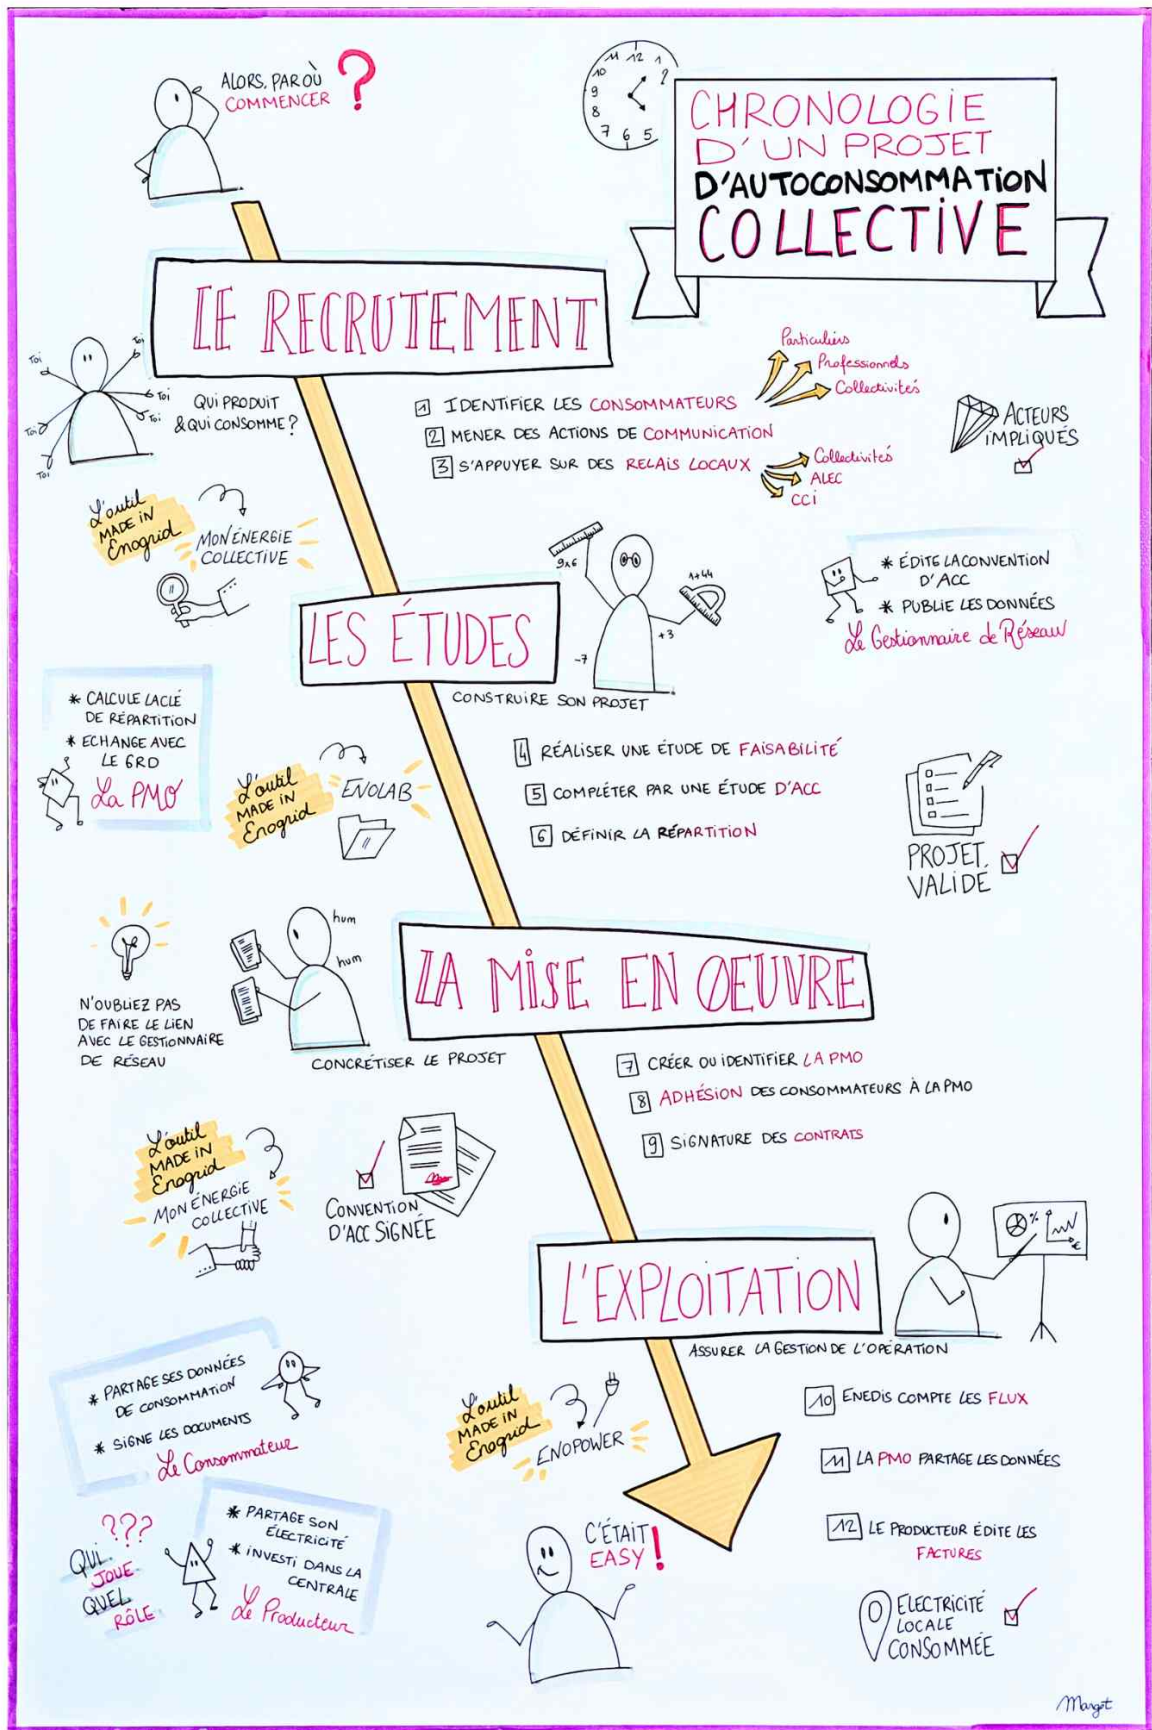 ALORS, PAR OÙ
COMMENCER ?
11 12 1
10 2
9
8
7 6 5
CHRONOLOGIE
D'UN PROJET
D'AUTOCONSOMMATION
COLLECTIVE
LE RECRUTEMENT
Toi
Toi
Toi
Toi
Toi
Toi
QUI PRODUIT
& QUI CONSOMME ?
1 IDENTIFIER LES CONSOMMATEURS
Particuliers
Professionnels
Collectivités
2 MENER DES ACTIONS DE COMMUNICATION
3 S'APPUYER SUR DES RELAIS LOCAUX
Collectivités
ALEC
CCI
ACTEURS
IMPLIQUÉS
L'outil
MADE IN
Enogrid
MON ÉNERGIE
COLLECTIVE
LES ÉTUDES
9x6
1+44
+3
-7
CONSTRUIRE SON PROJET
* ÉDITE LA CONVENTION
D'ACC
* PUBLIE LES DONNÉES
Le Gestionnaire de Réseau
* CALCULE LA CLÉ
DE RÉPARTITION
* ECHANGE AVEC
LE GRD
La PMO
L'outil
MADE IN
Enogrid
ENOLAB
4 RÉALISER UNE ÉTUDE DE FAISABILITÉ
5 COMPLÉTER PAR UNE ÉTUDE D'ACC
6 DÉFINIR LA RÉPARTITION
PROJET
VALIDÉ
N'OUBLIEZ PAS
DE FAIRE LE LIEN
AVEC LE GESTIONNAIRE
DE RÉSEAU
hum
hum
LA MISE EN OEUVRE
CONCRÉTISER LE PROJET
7 CRÉER OU IDENTIFIER LA PMO
8 ADHÉSION DES CONSOMMATEURS À LA PMO
9 SIGNATURE DES CONTRATS
L'outil
MADE IN
Enogrid
MON ÉNERGIE
COLLECTIVE
CONVENTION
D'ACC SIGNÉE
L'EXPLOITATION
%
€
ASSURER LA GESTION DE L'OPÉRATION
* PARTAGE SES DONNÉES
DE CONSOMMATION
* SIGNE LES DOCUMENTS
Le Consommateur
L'outil
MADE IN
Enogrid
ENOPOWER
10 ENEDIS COMPTE LES FLUX
11 LA PMO PARTAGE LES DONNÉES
12 LE PRODUCTEUR ÉDITE LES
FACTURES
???
QUI
JOUE
QUEL
RÔLE
* PARTAGE SON
ÉLECTRICITÉ
* INVESTI DANS LA
CENTRALE
Le Producteur
C'ÉTAIT
EASY !
ELECTRICITÉ
LOCALE
CONSOMMÉE
Margot